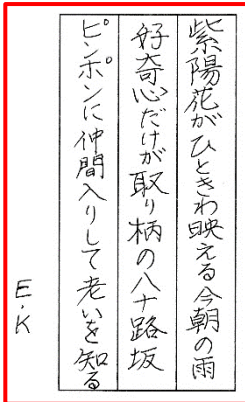 紫陽花がひときわ映える今朝の雨
好奇心だけが取り柄の八十路坂
ピンポンに仲間入りして老いを知る
E.K